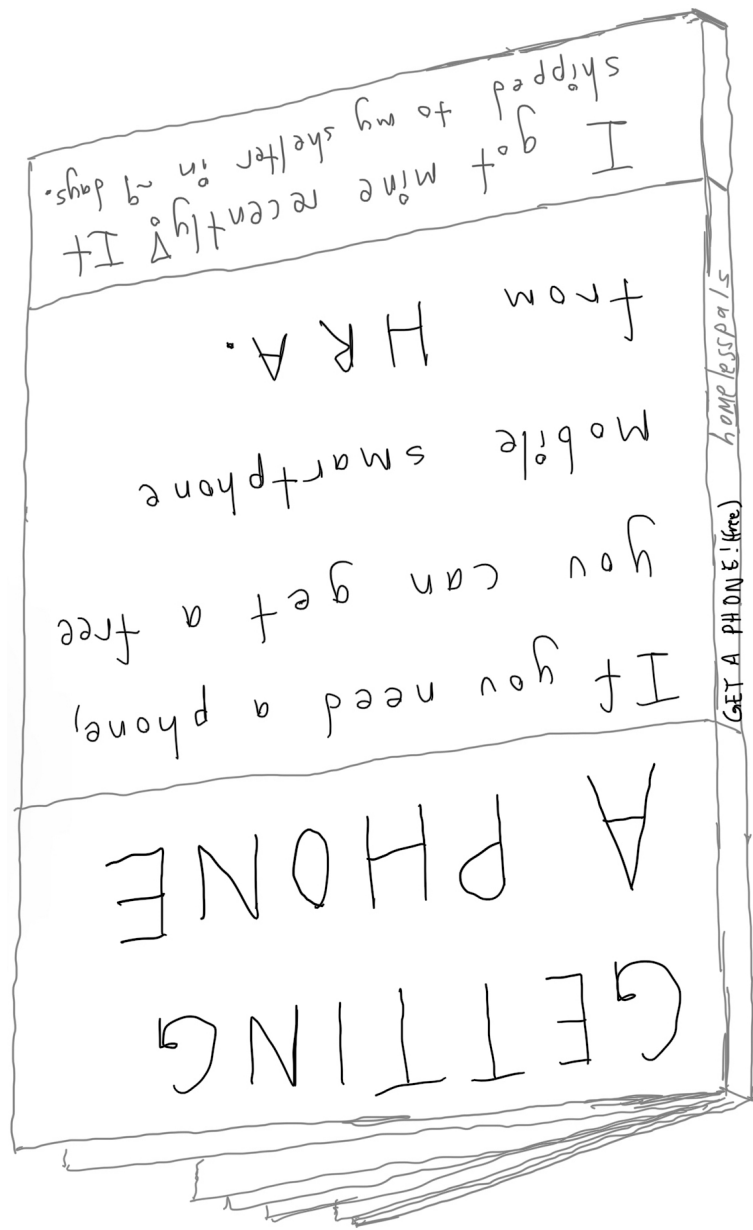 GETTING
A PHONE
If you need a phone,
you can get a free
mobile smartphone
from HRA.
I got mine recently! It
shipped to my shelter in ~9 days.
GET A PHONE! (free)
homelesspals